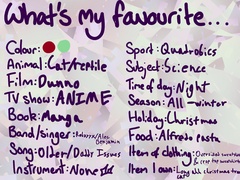 What's my favourite...
Colour:
Animal: Cat/reptile
Film: Dunno
TV show: ANIME
Book: Manga
Band/singer: /Alec Benjamin
Song: Older/Daddy Issues
Instrument: None
Sport: Quadrobics
Subject: Science
Time of day: Night
Season: All -winter
Holiday: Christmas
Food: Alfredo pasta
Item of clothing: Oversized
& crop top
Item I own: Long